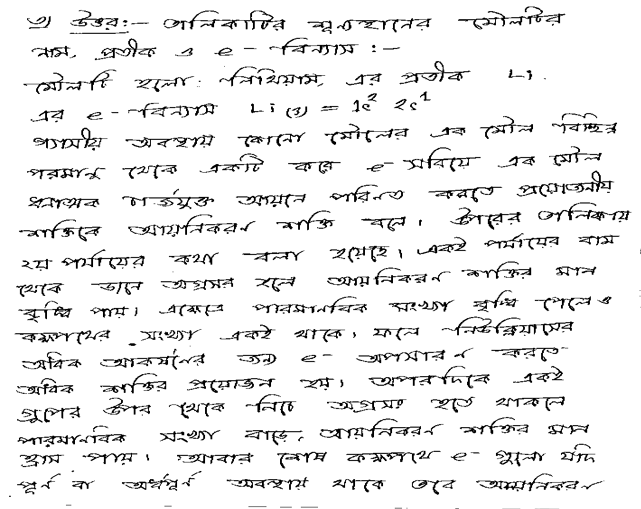 ৩) উত্তর:- তালিকাটির শূন্যস্থানের মৌলটির
নাম, প্রতীক ও e- বিন্যাস :-
মৌলটি হলো: লিথিয়াম, এর প্রতীক Li.
এর e- বিন্যাস Li (3) = 1s² 2s¹
গ্যাসীয় অবস্থায় কোনো মৌলের এক মৌল বিচ্ছিন্ন
পরমানু থেকে একটি করে e- সরিয়ে এক মৌল
ধনাত্মক চার্জযুক্ত আয়নে পরিনত করতে প্রয়োজনীয়
শক্তিকে আয়নিকরণ শক্তি বলে। উপরের তালিকায়
২য় পর্যায়ের কথা বলা হয়েছে। একই পর্যায়ের বাম
থেকে ডানে অগ্রসর হলে আয়নিকরণ শক্তির মান
বৃদ্ধি পায়। এক্ষেত্রে পারমানবিক সংখ্যা বৃদ্ধি পেলেও
কক্ষপথের সংখ্যা একই থাকে, ফলে নিউক্লিয়াসের
অধিক আকর্ষনের জন্য e- অপসারণ করতে
অধিক শক্তির প্রয়োজন হয়। অপরদিকে একই
গ্রুপের উপর থেকে নিচে অগ্রসর হতে থাকলে
পারমানবিক সংখ্যা বাড়ে, আয়নিকরণ শক্তির মান
হ্রাস পায়। আবার শেষ কক্ষপথে e- গুলো যদি
পূর্ণ বা অর্ধপূর্ণ অবস্থায় থাকে তবে আয়নিকরণ